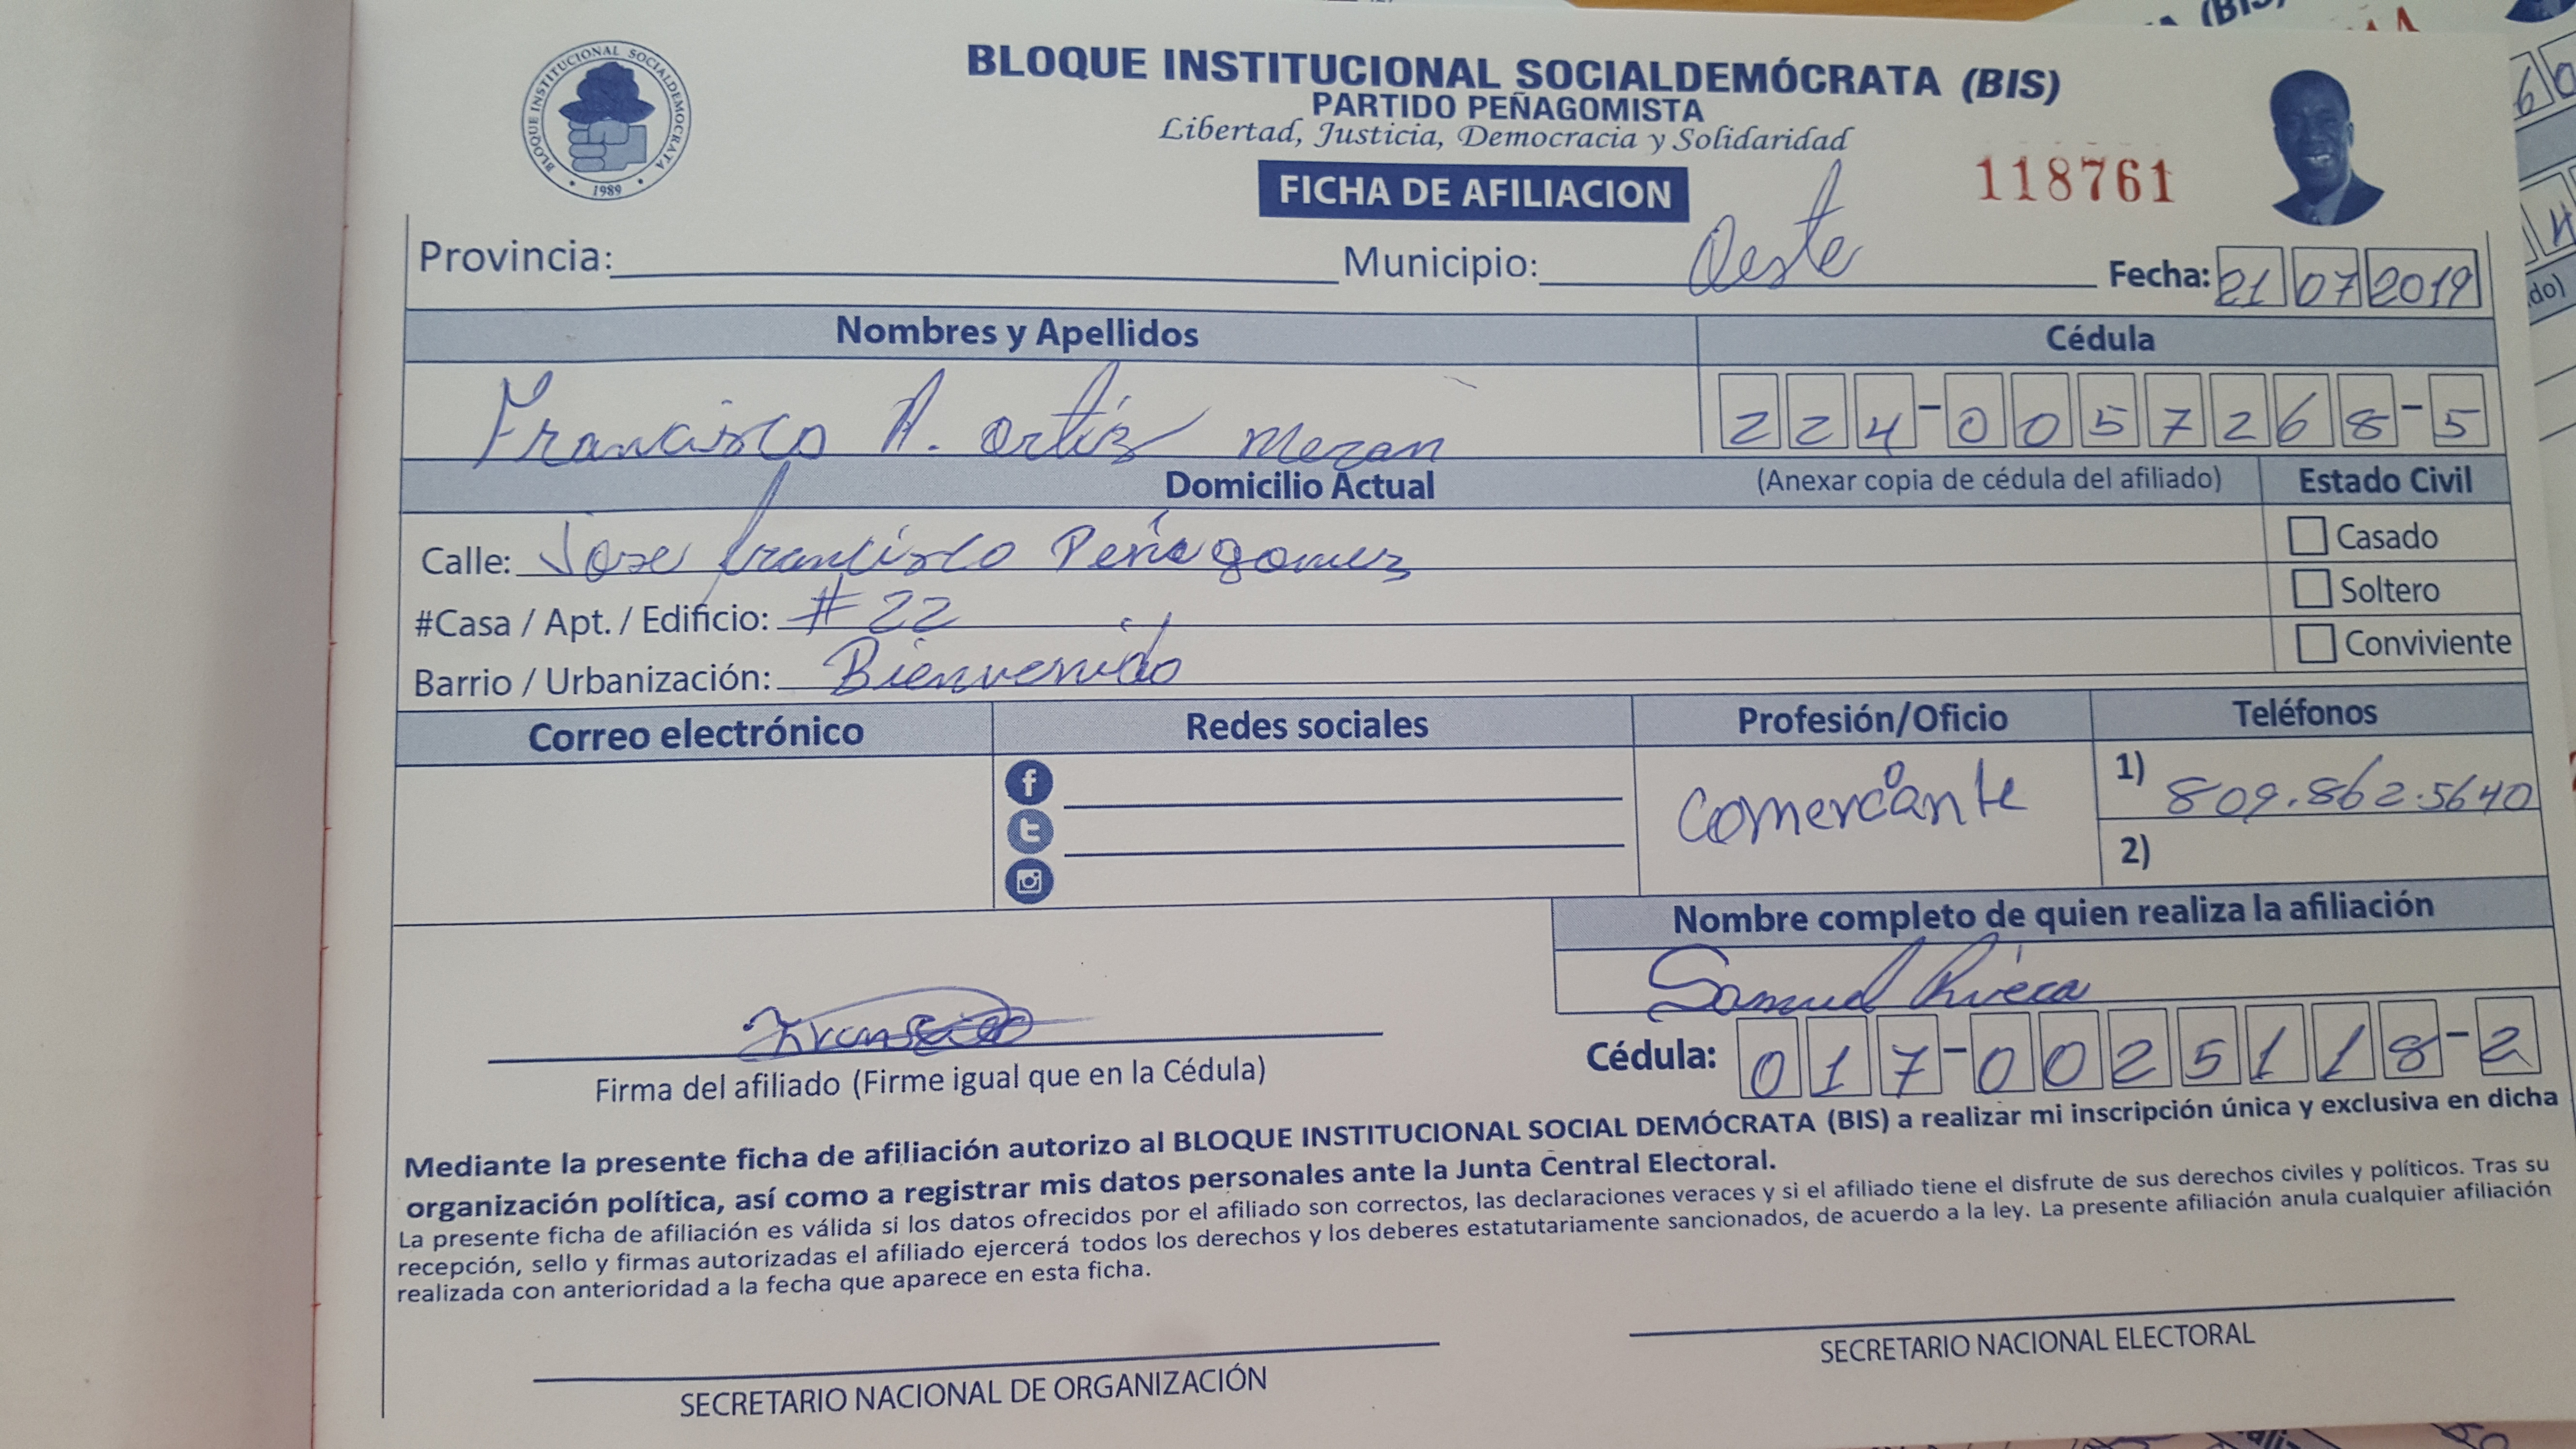 BLOQUE INSTITUCIONAL SOCIALDEMOCRATA
1989
BLOQUE INSTITUCIONAL SOCIALDEMÓCRATA (BIS)
PARTIDO PEÑAGOMISTA
Libertad, Justicia, Democracia y Solidaridad
FICHA DE AFILIACION
118761
Provincia: Municipio: Oeste Fecha: 21 07 2019
Nombres y Apellidos Cédula
Francisco A. Ortiz Mezan 224-0057268-5
Domicilio Actual (Anexar copia de cédula del afiliado) Estado Civil
Calle: Jose francisco Peña gomez Casado
#Casa / Apt. / Edificio: # 22 Soltero
Barrio / Urbanización: Bienvenido Conviviente
Correo electrónico Redes sociales Profesión/Oficio Teléfonos
Comerciante 1) 809.862.5640
2)
Nombre completo de quien realiza la afiliación
Samuel Rivera
Cédula: 017-0025118-2
Firma del afiliado (Firme igual que en la Cédula)
Mediante la presente ficha de afiliación autorizo al BLOQUE INSTITUCIONAL SOCIAL DEMÓCRATA (BIS) a realizar mi inscripción única y exclusiva en dicha
organización política, así como a registrar mis datos personales ante la Junta Central Electoral.
La presente ficha de afiliación es válida si los datos ofrecidos por el afiliado son correctos, las declaraciones veraces y si el afiliado tiene el disfrute de sus derechos civiles y políticos. Tras su
recepción, sello y firmas autorizadas el afiliado ejercerá todos los derechos y los deberes estatutariamente sancionados, de acuerdo a la ley. La presente afiliación anula cualquier afiliación
realizada con anterioridad a la fecha que aparece en esta ficha.
SECRETARIO NACIONAL DE ORGANIZACIÓN SECRETARIO NACIONAL ELECTORAL